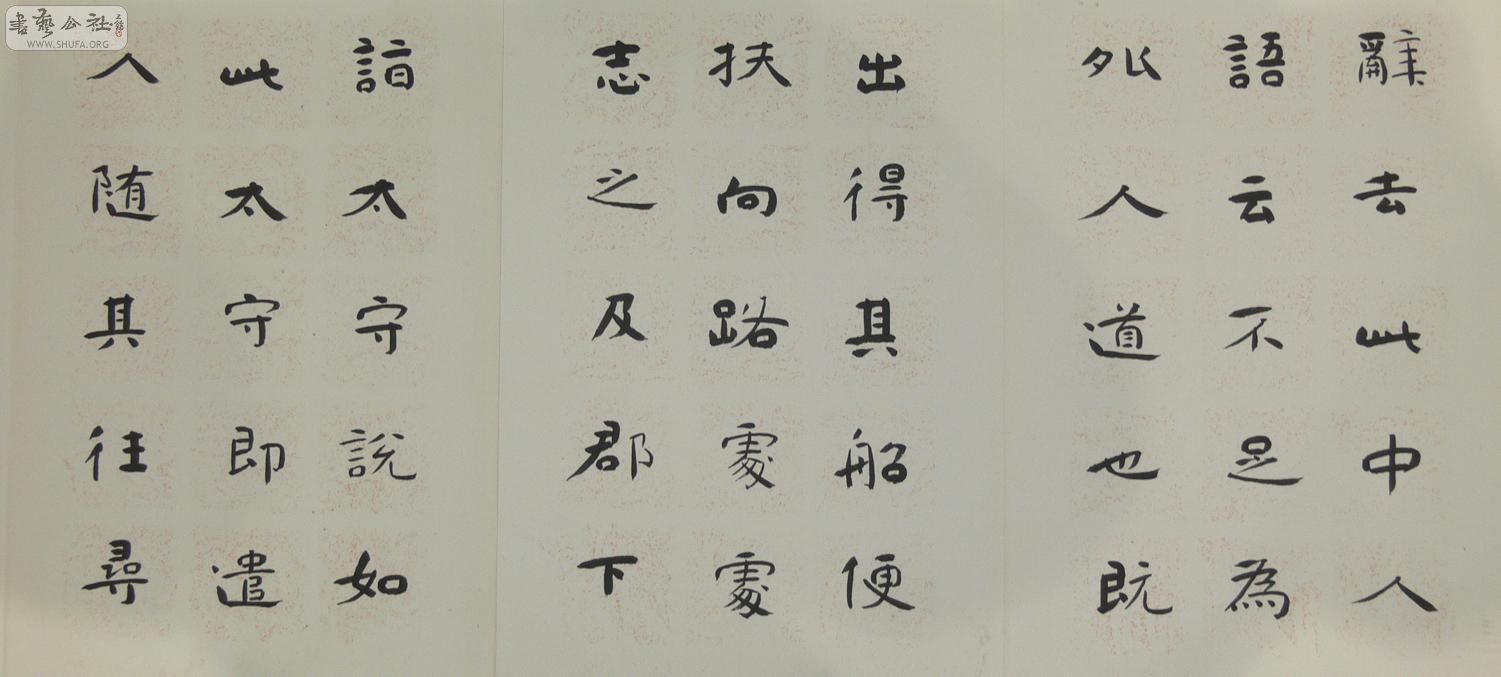 辭去此中人
語云不足為
外人道也既
出得其船便
扶向路處處
志之及郡下
詣太守說如
此太守即遣
人随其往尋
書藝公社
WWW.SHUFA.ORG